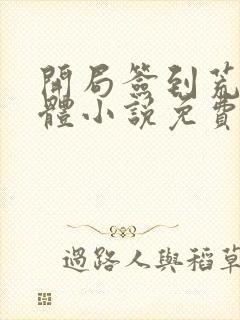 開局簽到荒
體小說免費
過路人與稻草